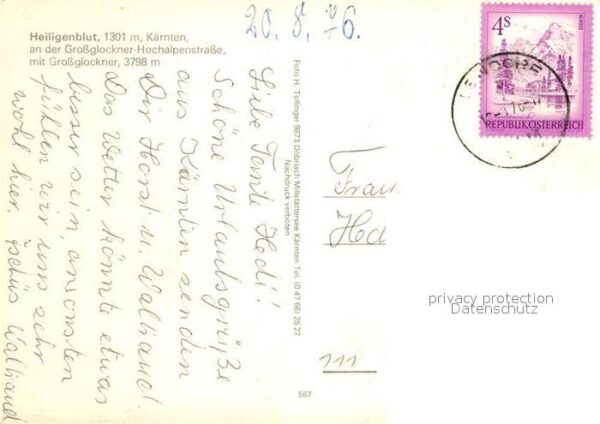 Heiligenblut, 1301 m, Kärnten,
an der Großglockner-Hochalpenstraße,
mit Großglockner, 3798 m
20. 8. 76.
Liebe Tante Hedi!
Schöne Urlaubsgrüße
aus Kärnten senden
Dir Horst u. Waltraud.
Das Wetter könnte etwas
besser sein, ansonsten
fühlen wir uns sehr
wohl hier. Tschüs Waltraud
Foto H. Tollinger 9873 Döbriach Millstättersee Kärnten Tel. (0 47 66) 25 27
Nachdruck verboten
4S
REPUBLIK ÖSTERREICH
Frau
Hed
privacy protection
Datenschutz
111
567